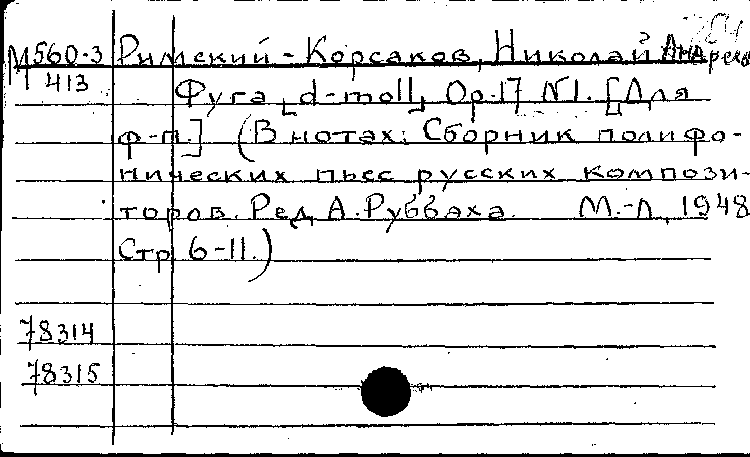 М560-3 Римский-Корсаков, Николай Андреев
413
Фуга [d-moll], Op.17 N1. [Для
ф-п.] (В нотах: Сборник полифо-
нических пьес русских компози-
торов. Ред. А. Руббаха. М.-Л., 1948
Стр 6-11.)
78314
78315